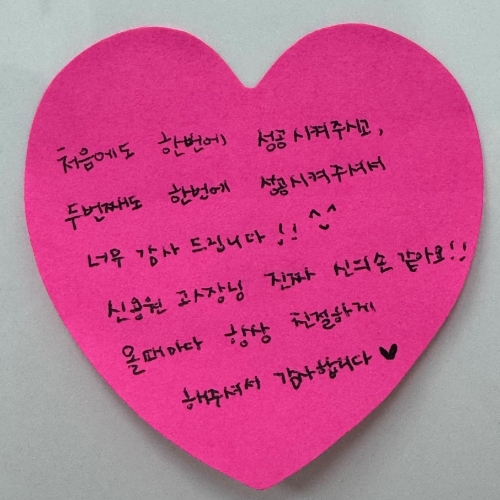 처음에도 한번에 성공시켜주시고,
두번째도 한번에 성공시켜주셔서
너무 감사 드립니다!! ^^
신용원 과장님 진짜 신의손 같아요!!
올때마다 항상 친절하게
해주셔서 감사합니다 ♥